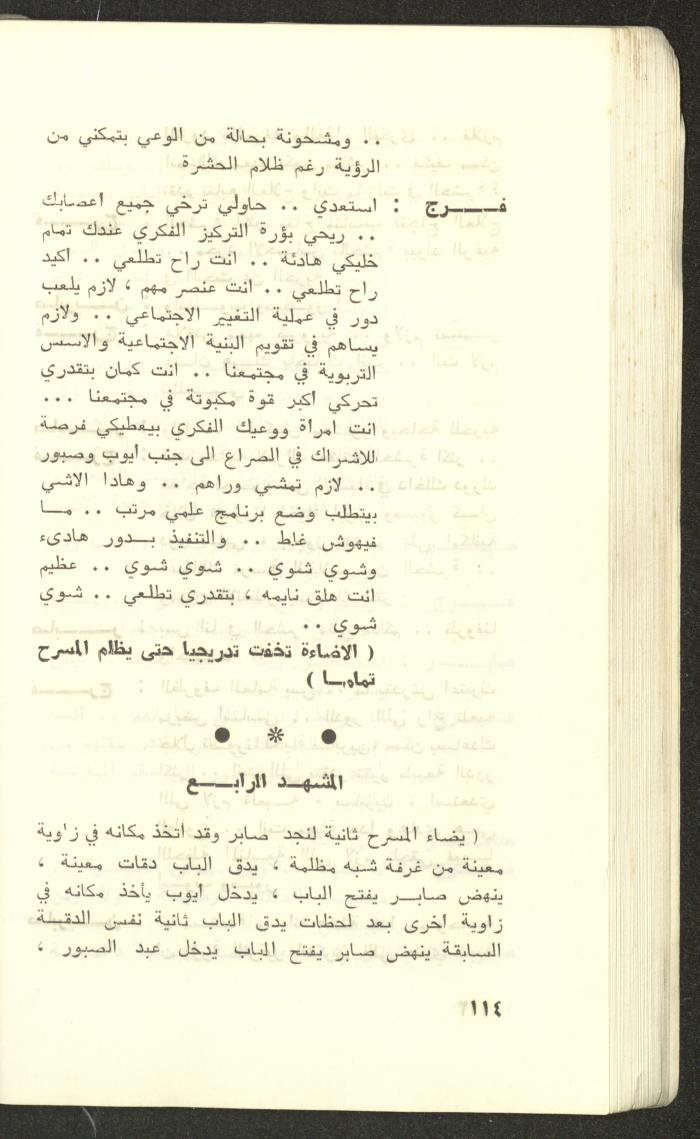 .. ومشحونة بحالة من الوعي بتمكني من
الرؤية رغم ظلام الحشرة
فـــرج : استعدي .. حاولي ترخي جميع اعصابك
.. ريحي بؤرة التركيز الفكري عندك تمام
خليكي هادئة .. انت راح تطلعي .. اكيد
راح تطلعي .. انت عنصر مهم ، لازم يلعب
دور في عملية التغيير الاجتماعي .. ولازم
يساهم في تقويم البنية الاجتماعية والاسس
التربوية في مجتمعنا .. انت كمان بتقدري
تحركي اكبر قوة مكبوتة في مجتمعنا ...
انت امرأة ووعيك الفكري بيعطيكي فرصة
للاشراك في الصراع الى جنب ايوب وصبور
.. لازم تمشي وراهم .. وهادا الاشي
بيتطلب وضع برنامج علمي مرتب .. مــا
فيهوش غلط .. والتنفيذ بــدور هادىء
وشوي شوي .. شوي شوي .. عظيم
انت هلق نايمه ، بتقدري تطلعي .. شوي
شوي ..
( الاضاءة تخفت تدريجيا حتى يظلم المسرح
تمامــا )
● * ●
المشهــد الرابــع
( يضاء المسرح ثانية لنجد صابر وقد اتخذ مكانه في زاوية
معينة من غرفة شبه مظلمة ، يدق الباب دقات معينة ،
ينهض صابــر يفتح الباب ، يدخل ايوب يأخذ مكانه في
زاوية اخرى بعد لحظات يدق الباب ثانية نفس الدقــة
السابقة ينهض صابر يفتح الباب يدخل عبد الصبور ،
١١٤